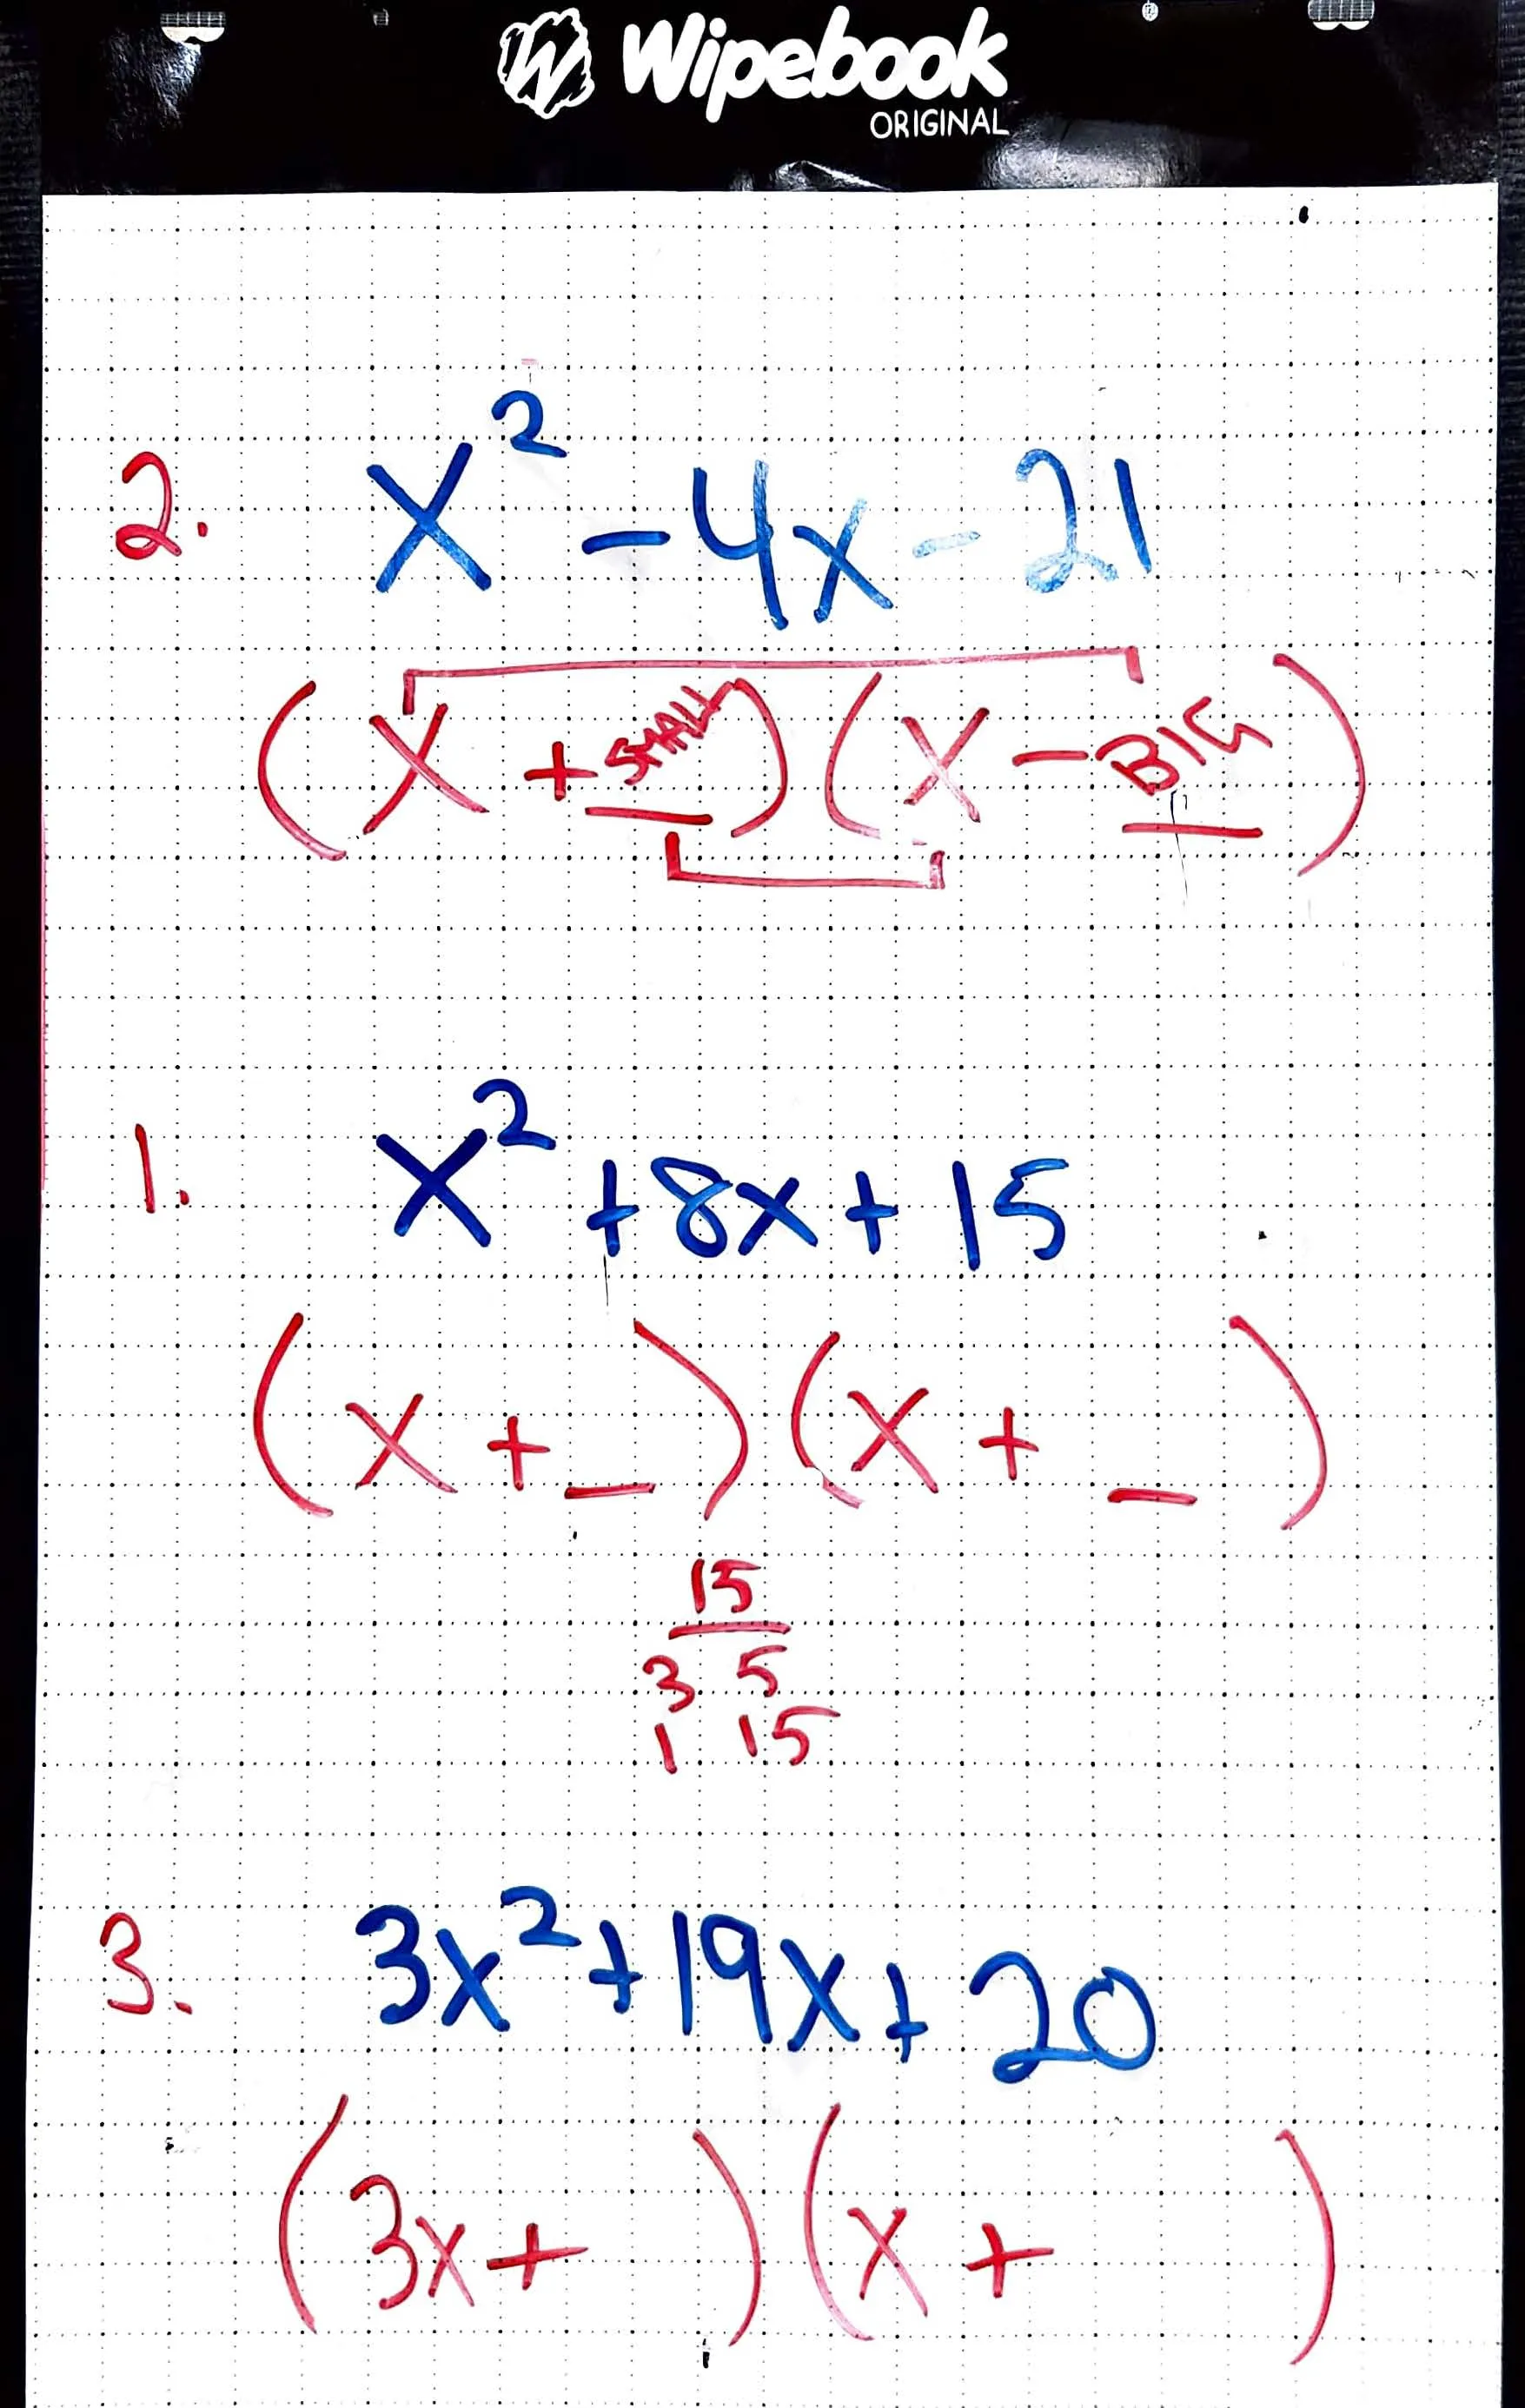 Wipebook
ORIGINAL
2. x² - 4x - 21
(x + SMALL)(x - BIG)
1. x² + 8x + 15
(x + _)(x + _)
15
3 5
1 15
3. 3x² + 19x + 20
(3x + )(x + )